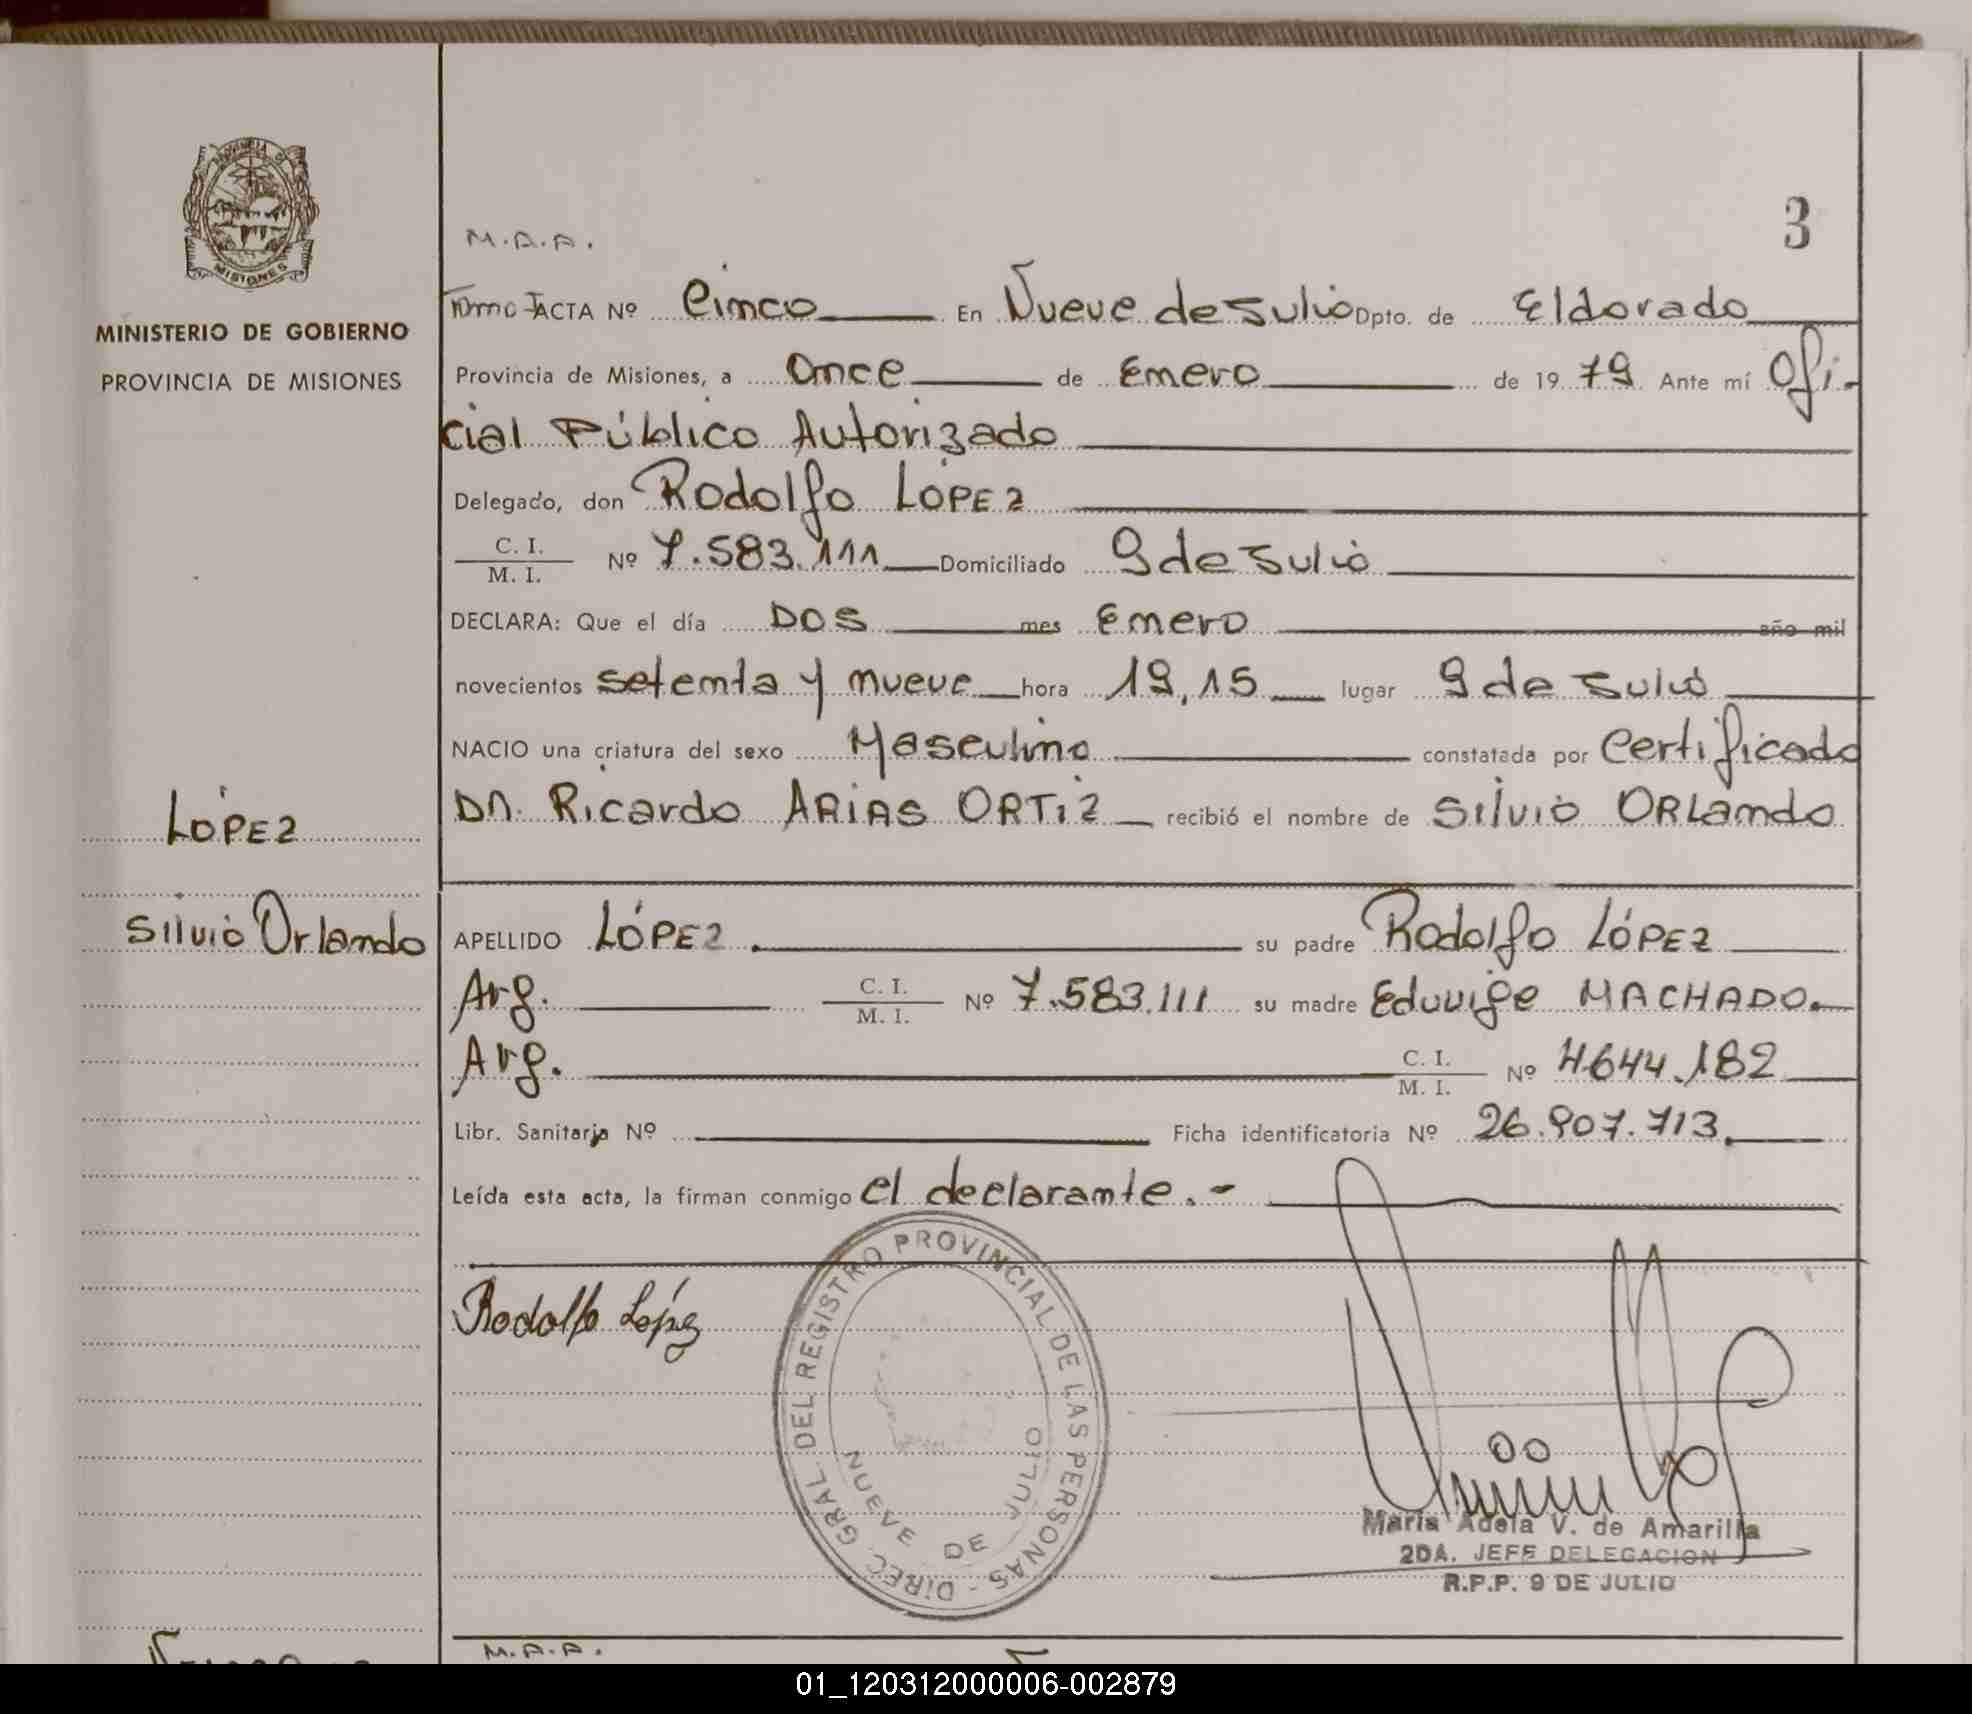 3
PROVINCIA DE
MISIONES
MINISTERIO DE GOBIERNO
PROVINCIA DE MISIONES
LÓPEZ
Silvio Orlando
M.A.A.
Tomo I ACTA Nº Cinco En Nueve de Julio Dpto. de Eldorado
Provincia de Misiones, a Once de Enero de 1979 Ante mí Ofi-
cial Público Autorizado
Delegado, don Rodolfo LÓPEZ
C. I.
M. I. Nº 7.583.111 Domiciliado 9 de Julio
DECLARA: Que el día DOS mes Enero año mil
novecientos setenta y nueve hora 19,15 lugar 9 de Julio
NACIO una criatura del sexo Masculino constatada por Certificado
Dn. Ricardo ARIAS ORTIZ recibió el nombre de Silvio ORLando
APELLIDO LÓPEZ. su padre Rodolfo LÓPEZ
Arg. C. I. M. I. Nº 7.583.111 su madre Eduvige MACHADO.
Arg. C. I. M. I. Nº 4.644.182
Libr. Sanitaria Nº Ficha identificatoria Nº 26.907.713.
Leída esta acta, la firman conmigo el declarante.-
Rodolfo López
DIREC. GRAL. DEL REGISTRO PROVINCIAL DE LAS PERSONAS -
NUEVE DE JULIO
María Adela V. de Amarilla
2DA. JEFE DELEGACION
R.P.P. 9 DE JULIO
M.A.A.
01_120312000006-002879